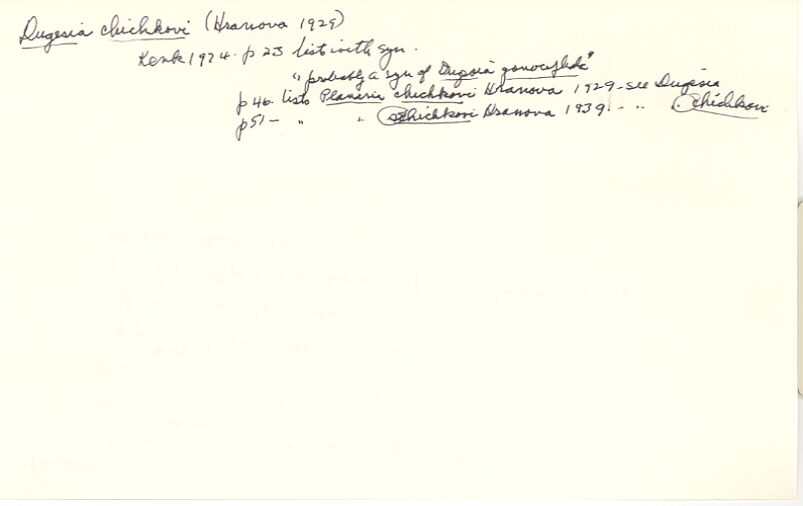 Dugesia chichkovi (Hranova 1929)
Kenk 1974. p 23 list with syn.
"probably a syn of Dugesia gonocephala"
p 40. lists Planaria chichkovi Hranova 1929 - see Dugesia
p 51 - " " schichkovi Hranova 1939. - " chichkovi